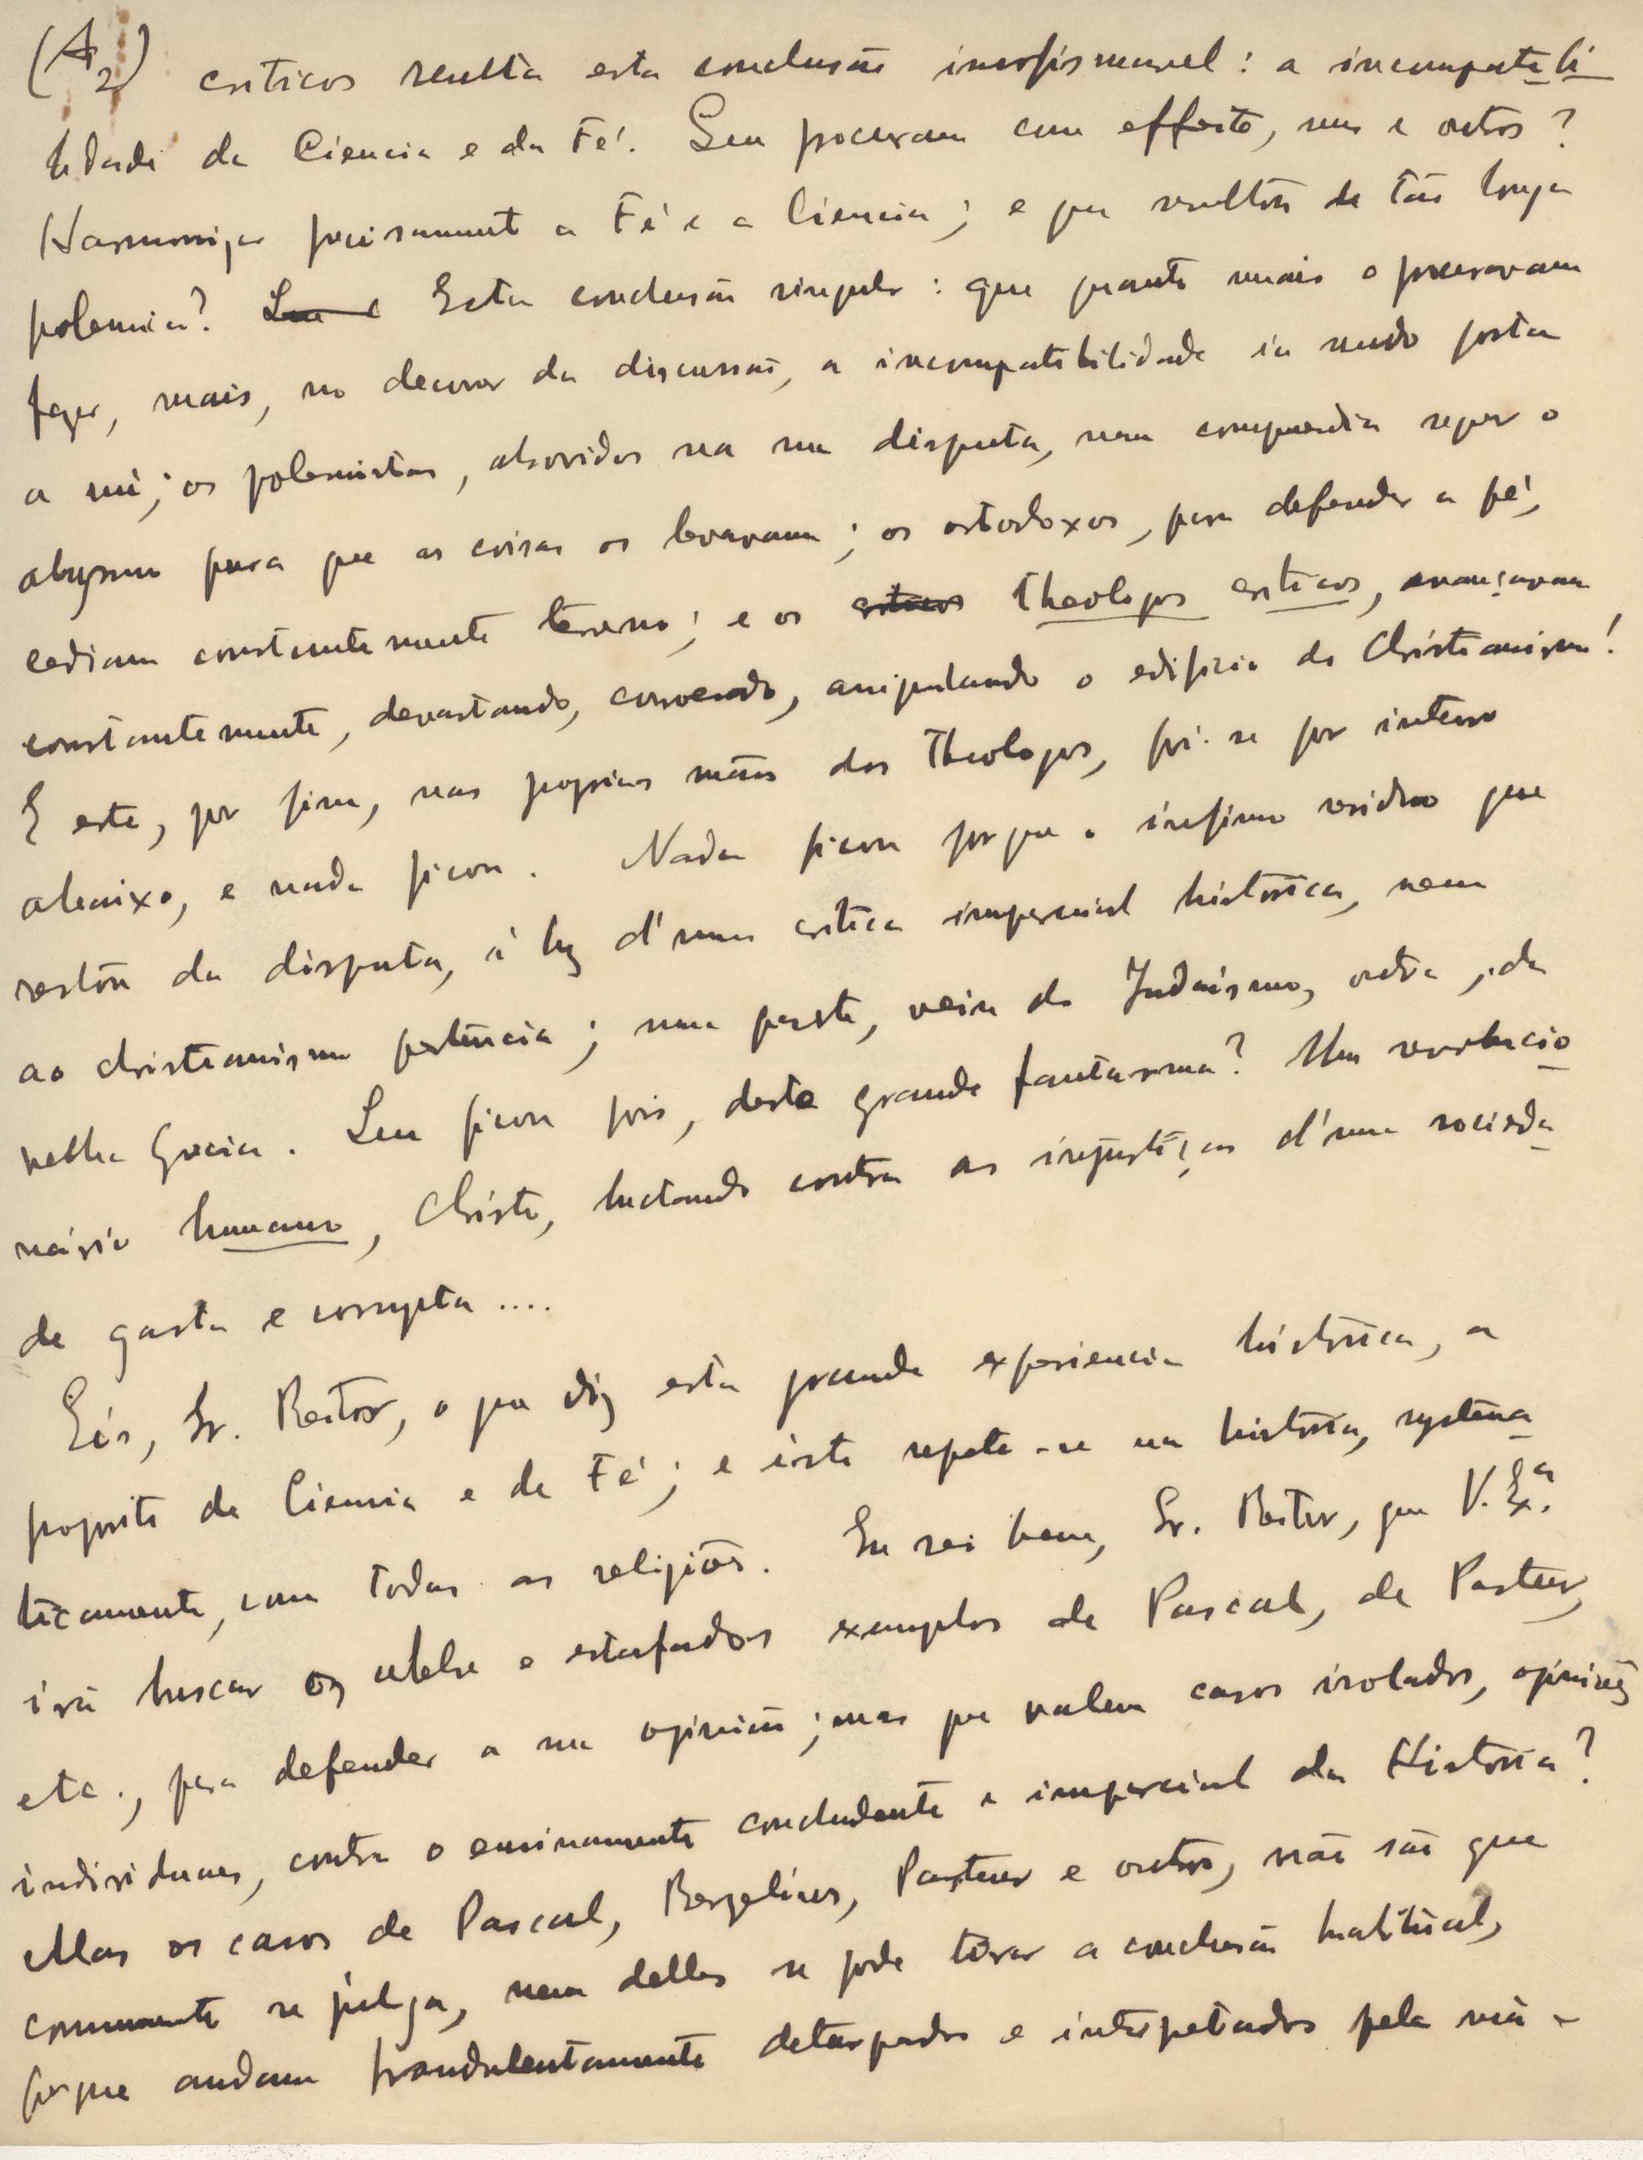 (A2) criticos resulta esta conclusão insofismavel: a incompatibi
lidade da Ciencia e da Fé. Que procuram com effeito, uns e outros?
Harmonizar precisamente a Fé e a Ciencia; e que resultou de tão longa
polemica? Que e Esta conclusão singular: que quanto mais o procuravam
fazer, mais, no decorrer da discussão, a incompatibilidade ia sendo posta
a nú; os polemistas, absorvidos na sua disputa, nem comprendia sequer o
abysmo para que as coisas os levavam; os ortodoxos, para defender a fé,
cediam constantemente terreno; e os criticos Theologos criticos, avançavam
constantemente, devastando, corroendo, aniquilando o edificio do Christianismo!
E este, por fim, nas proprias mãos dos Theologos, foi-se por inteiro
abaixo, e nada ficou. Nada ficou porque o infimo residuo que
restou da disputa, á luz d'uma critica imparcial historica, nem
ao christianismo pertencia; uma parte, veiu do Judaismo, outra, da
velha Grecia. Que ficou pois, deste grande fantasma? Um revolucio
nário humano, Christo, luctando contra as injustiças d'uma socieda
de gasta e corrupta ....
Eis, Sr. Reitor, o que diz esta grande experiencia historica, a
proposito da Ciencia e da Fé; e isto repete-se na historia, systema
ticamente, com todas as religiões. Eu sei bem, Sr. Reitor, que V. Exª.
irá buscar os celebres e estafados exemplos de Pascal, de Pasteur,
etc., para defender a sua opinião; mas que valem casos isolados, opiniões
individuaes, contra o ensinamento concludente e imparcial da Historia?
Mas os casos de Pascal, Berzelius, Pasteur e outros, não são que
communmente se julga, nem delles se pode tirar a conclusão habitual,
porque andam fraudulentamente deturpados e interpetados pela má-